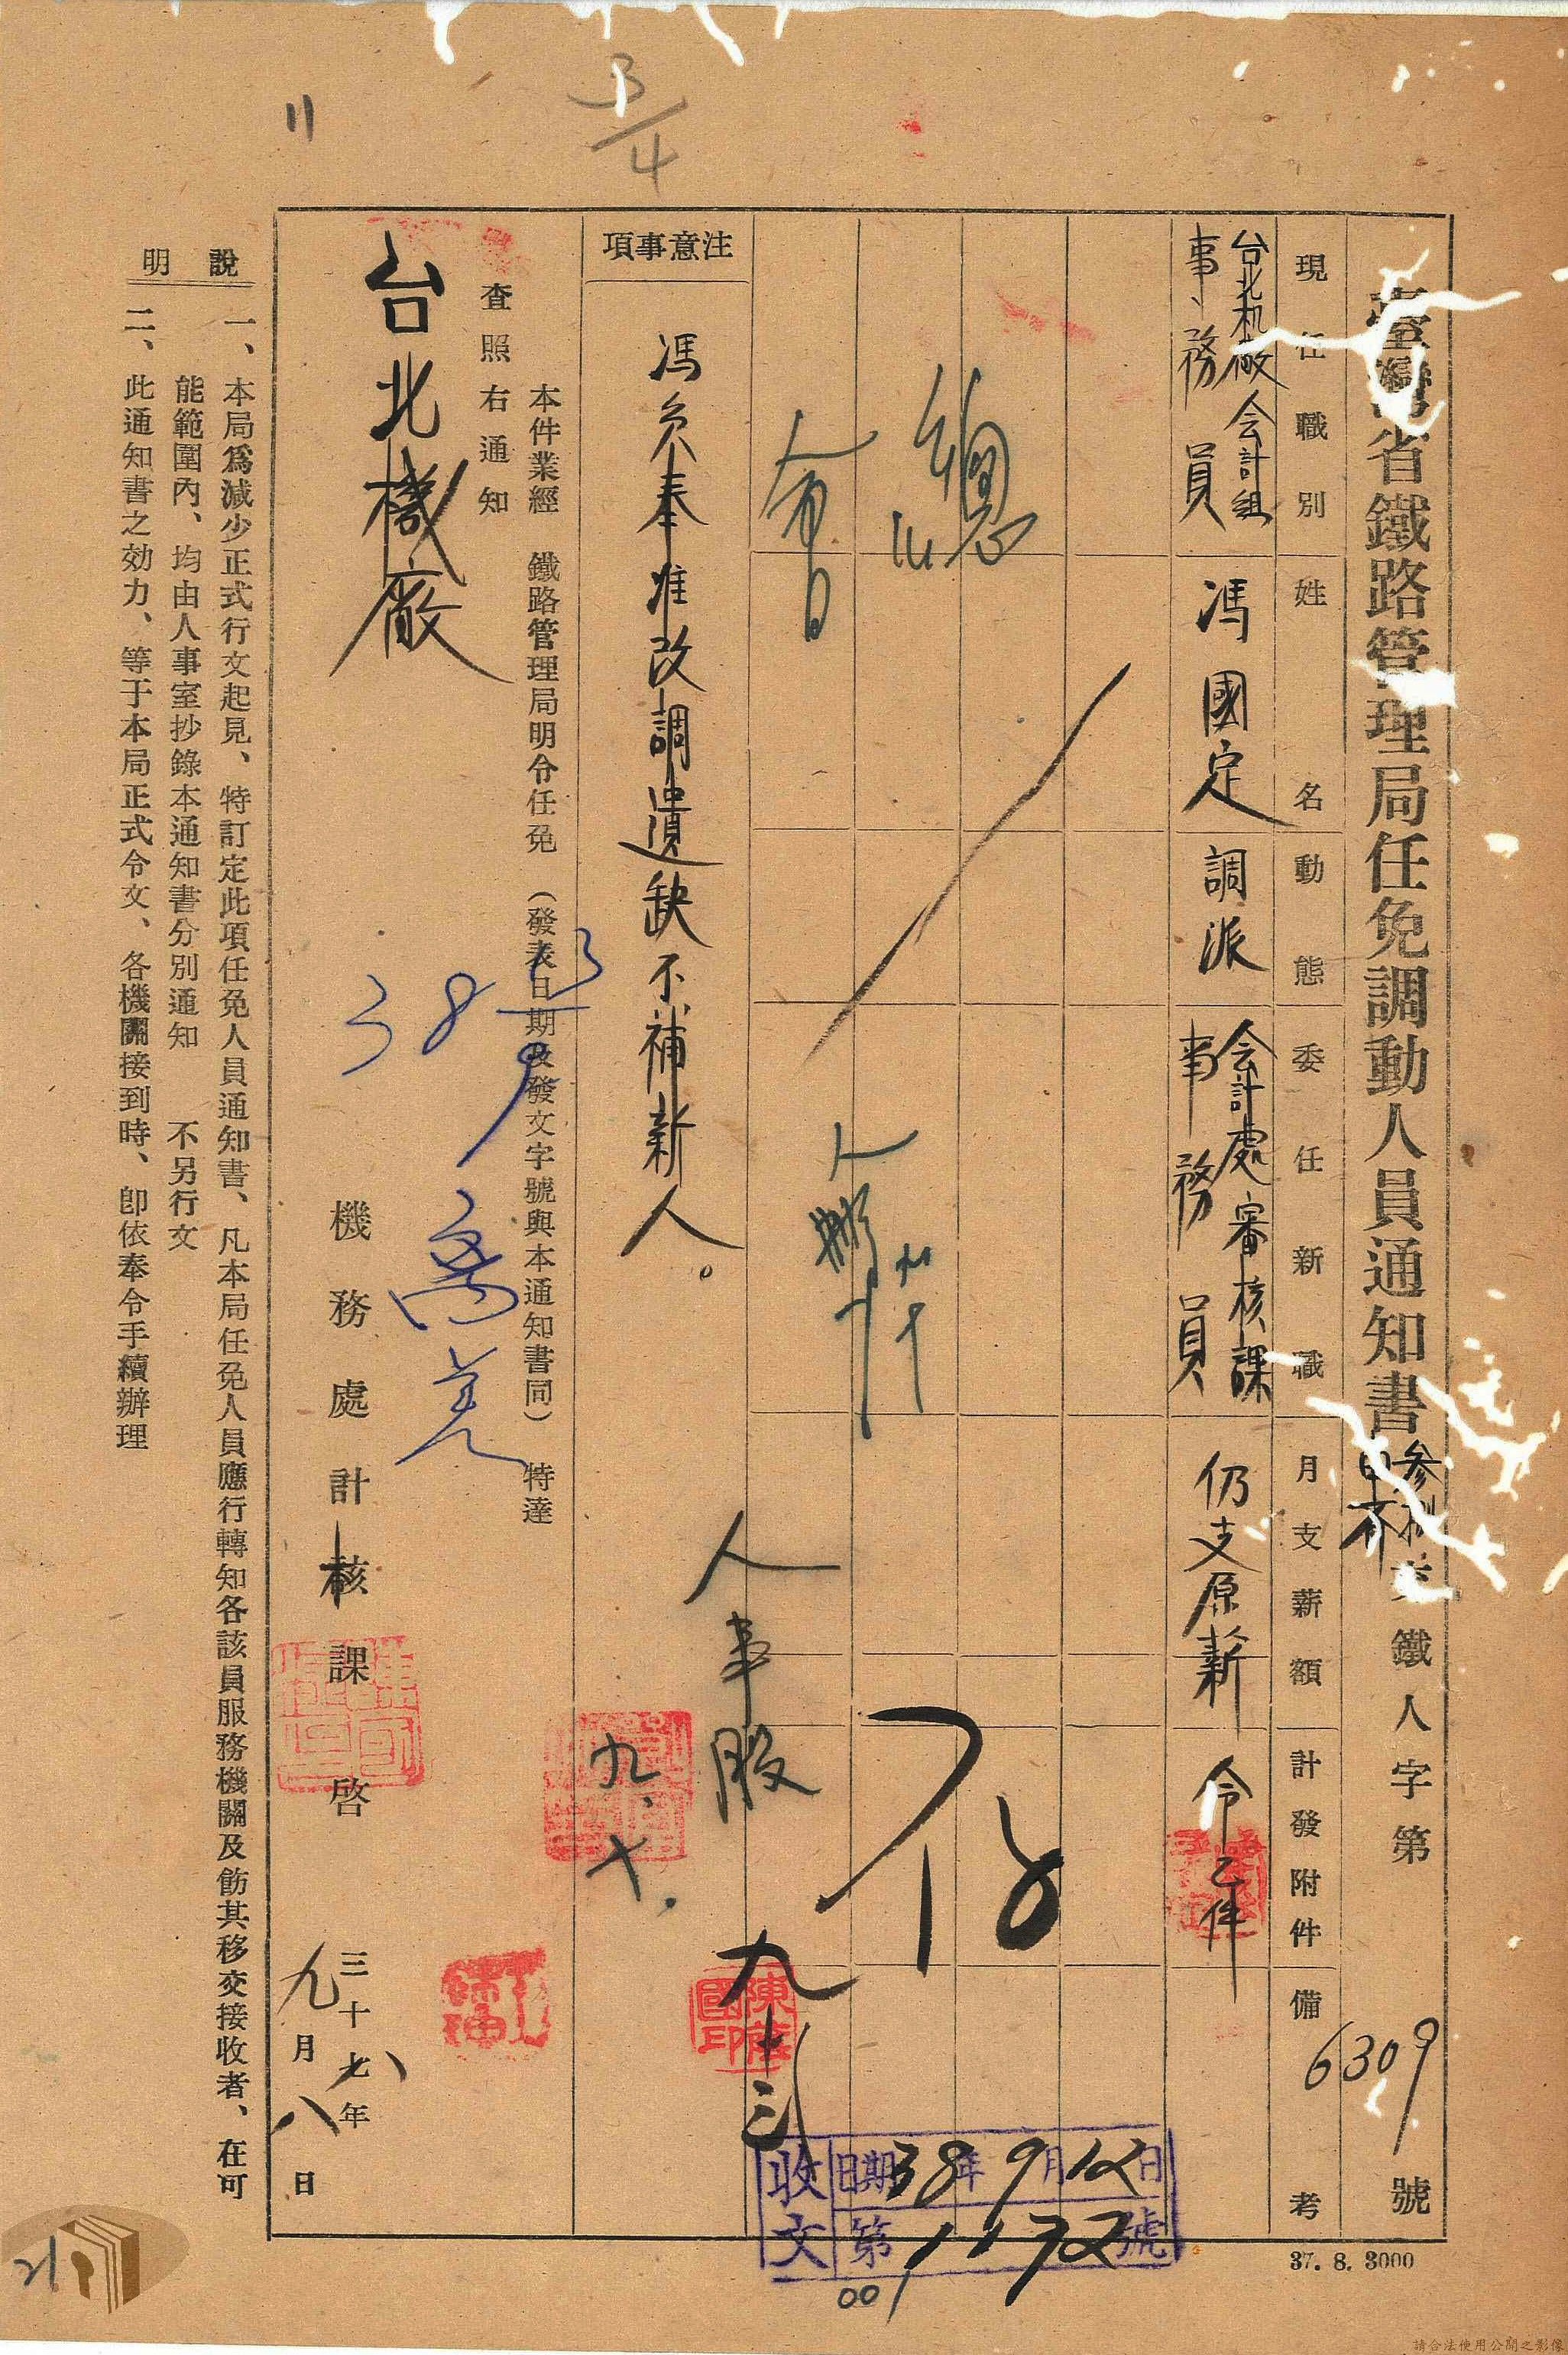 臺灣省鐵路管理局任免調動人員通知書
鐵人字第6309號
現任職別
姓名
動態
委任新職
月支薪額
計發附件
備考
台北机廠会計組
事務員
馮國定
調派
会計處審核課
事務員
仍支原薪
令乙件
總
人事股
九、十、
九 十三
注意事項
馮員奉准改調遺缺不補新人。
本件業經 鐵路管理局明令任免 (發表日期及發文字號與本通知書同) 特達
查照右通知
台北機廠
38 13/9
機務處計核課 啓
三十八年九月八日
說明
一、本局爲減少正式行文起見、特訂定此項任免人員通知書、凡本局任免人員應行轉知各該員服務機關及飭其移交接收者、在可
能範圍內、均由人事室抄錄本通知書分別通知 不另行文
二、此通知書之効力、等于本局正式令文、各機關接到時、卽依奉令手續辦理
陳 國印
收文
日期38年9月12日
第1172號
001
37. 8. 3000
3/4
11
21
請合法使用公開之影像